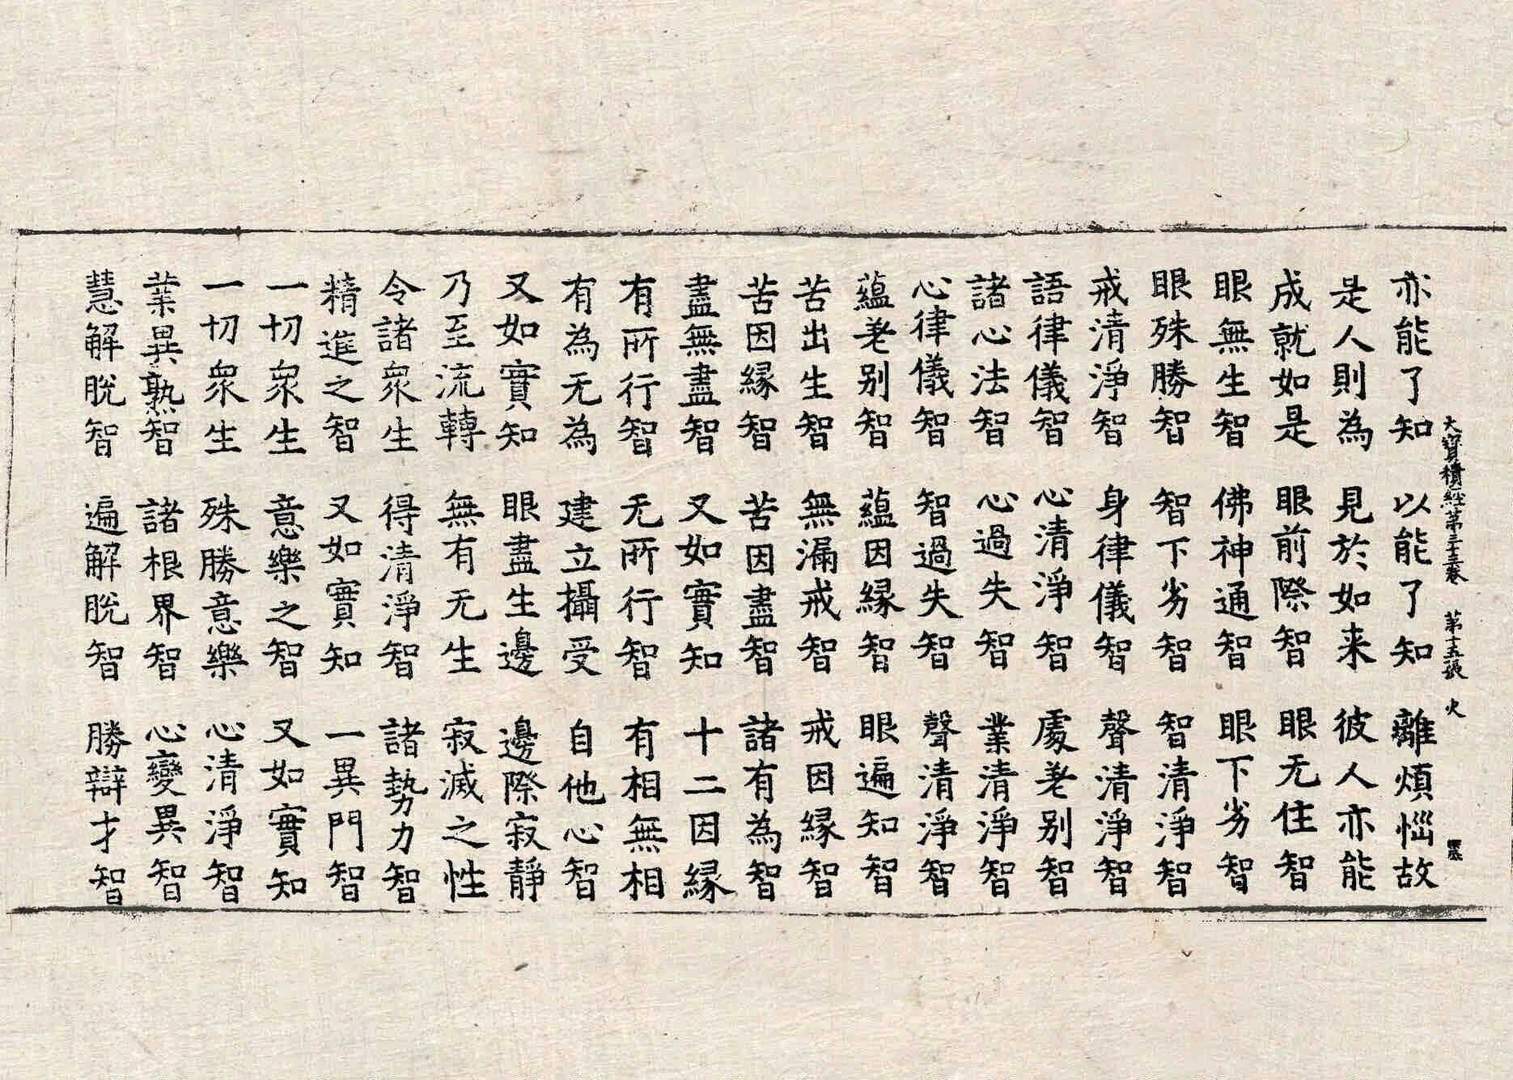 大寶積經第三十五卷 第十五張 火
亦能了知 以能了知 離煩惱故
是人則為 見於如来 彼人亦能
成就如是 眼前際智 眼无住智
眼無生智 佛神通智 眼下劣智
眼殊勝智 智下劣智 智清淨智
戒清淨智 身律儀智 聲清淨智
語律儀智 心清淨智 處差别智
諸心法智 心過失智 業清淨智
心律儀智 智過失智 聲清淨智
蘊差别智 蘊因縁智 眼遍知智
苦出生智 無漏戒智 戒因縁智
苦因縁智 苦因盡智 諸有為智
盡無盡智 又如實知 十二因縁
有所行智 无所行智 有相無相
有為无為 建立攝受 自他心智
又如實知 眼盡生邊 邊際寂静
乃至流轉 無有无生 寂滅之性
令諸衆生 得清淨智 諸勢力智
精進之智 又如實知 一異門智
一切衆生 意樂之智 又如實知
一切衆生 殊勝意樂 心清淨智
業異熟智 諸根界智 心變異智
慧解脫智 遍解脫智 勝辯才智